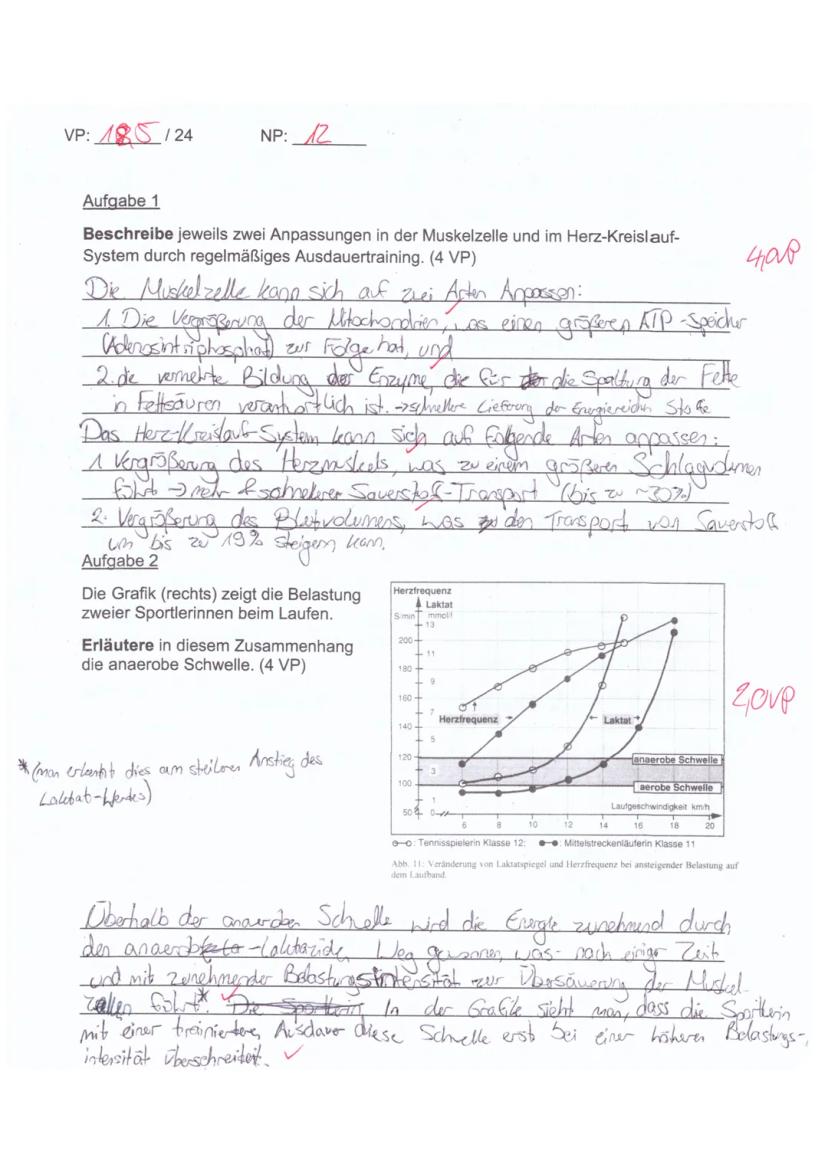 VP: 18,5 / 24 NP: 12
Aufgabe 1
Beschreibe jeweils zwei Anpassungen in der Muskelzelle und im Herz-Kreislauf-
System durch regelmäßiges Ausdauertraining. (4 VP)
4,0VP
Die Muskelzelle kann sich auf zwei Arten Anpassen:
1. Die Vergrößerung der Mitochondrien, was einen größeren ATP-Speicher
(Adenosintriphosphat) zur Folge hat, und
2. die vermehrte Bildung der Enzyme, die für die Spaltung der Fette
in Fettsäuren verantwortlich ist. → schnellere Lieferung der Energiereichen Stoffe
Das Herz-Kreislauf-System kann sich auf folgende Arten anpassen:
1 Vergrößerung des Herzmuskels, was zu einem größeren Schlagvolumen
führt → mehr & schnellerer Sauerstoff-Transport (bis zu ~30%)
2. Vergrößerung des Blutvolumens, was den Transport von Sauerstoff
um bis zu 19% steigern kann.
Aufgabe 2
Die Grafik (rechts) zeigt die Belastung
zweier Sportlerinnen beim Laufen.
Erläutere in diesem Zusammenhang
die anaerobe Schwelle. (4 VP)
2,0VP
*(man erkennt dies am steileren Anstieg des
Laktat-Wertes)
Herzfrequenz
Laktat
S/min mmol/l
13
200
11
180
9
160
7
Herzfrequenz Laktat
140
5
120
anaerobe Schwelle
3
100
aerobe Schwelle
1
Laufgeschwindigkeit km/h
50 0
6 8 10 12 14 16 18 20
o-o: Tennisspielerin Klasse 12; ●-●: Mittelstreckenläuferin Klasse 11
Abb. 11: Veränderung von Laktatspiegel und Herzfrequenz bei ansteigender Belastung auf
dem Laufband.
Überhalb der anaeroben Schwelle wird die Energie zunehmend durch
den anaerob-laktaziden Weg gewonnen, was nach einiger Zeit
und mit zunehmender Belastungsintensität zur Übersäuerung der Muskel-
zellen führt.* Die Sportlerin In der Grafik sieht man, dass die Sportlerin
mit einer trainierteren Ausdauer diese Schwelle erst bei einer höheren Belastungs-
intensität überschreitet.